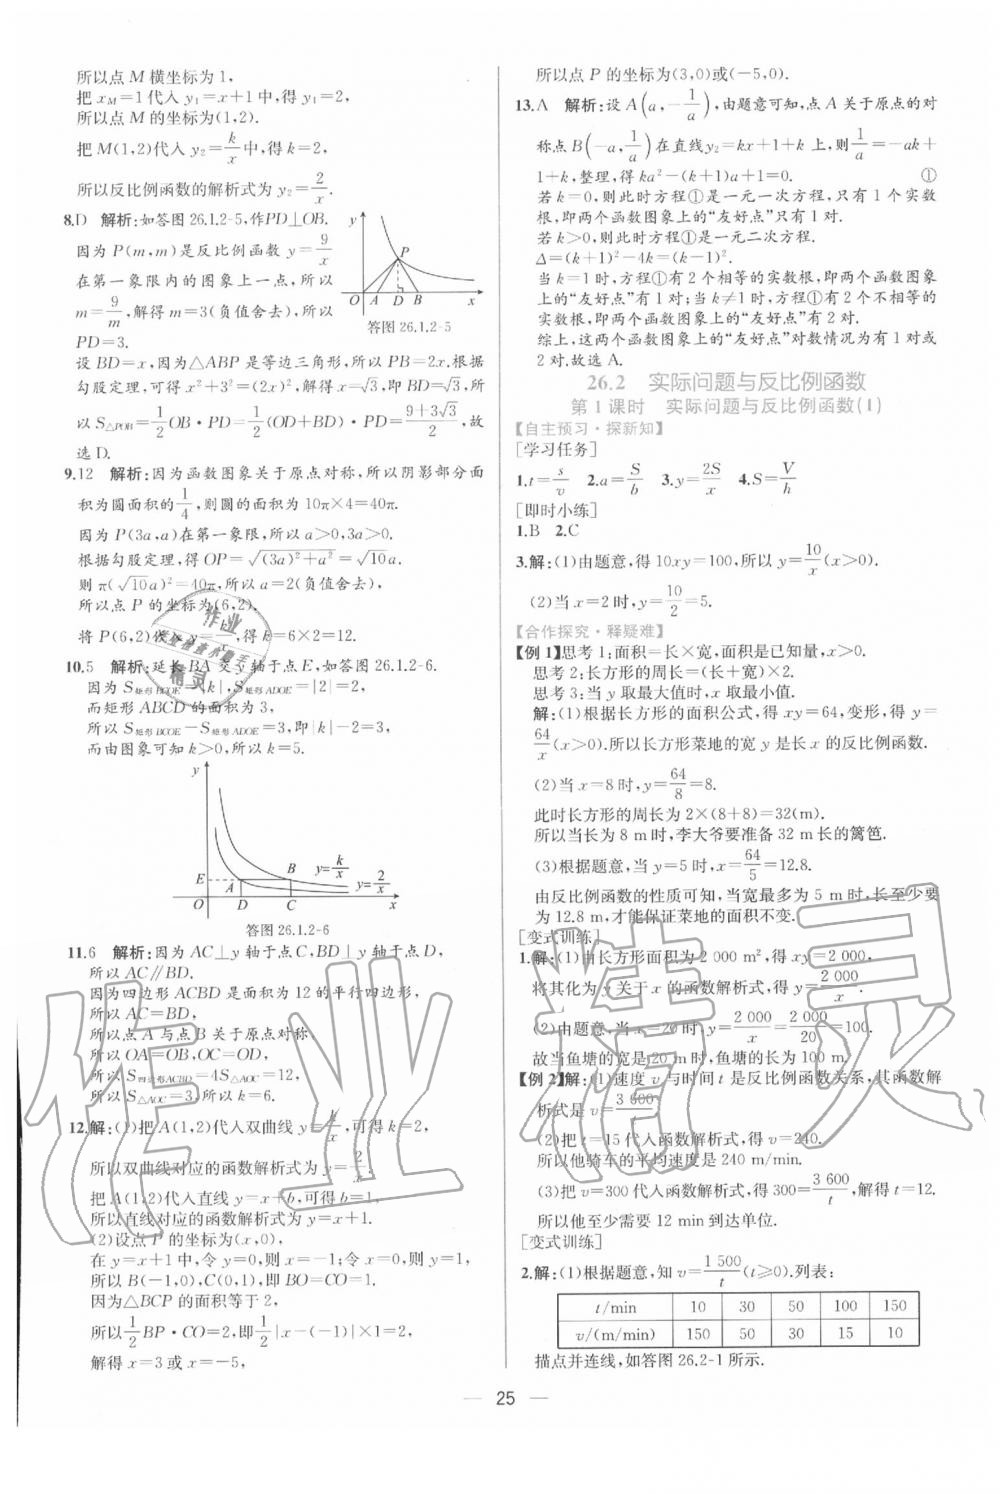 所以点 M 横坐标为 1,
把 x_M=1 代入 y₁=x+1 中,得 y₁=2,
所以点 M 的坐标为(1,2).
把 M(1,2)代入 y₂=k/x 中,得 k=2,
所以反比例函数的解析式为 y₂=2/x.
8.D 解析:如答图 26.1.2-5,作PD⊥OB.
因为 P(m,m)是反比例函数 y=9/x
在第一象限内的图象上一点,所以
m=9/m,解得 m=3(负值舍去),所以
PD=3.
y
P
O A D B x
答图 26.1.2-5
设 BD=x,因为△ABP 是等边三角形,所以 PB=2x.根据
勾股定理,可得 x²+3²=(2x)²,解得 x=√3,即 BD=√3,所
以 S△POB=1/2 OB·PD=1/2(OD+BD)·PD=(9+3√3)/2,故
选 D.
9.12 解析:因为函数图象关于原点对称,所以阴影部分面
积为圆面积的1/4,则圆的面积为 10π×4=40π.
因为 P(3a,a)在第一象限,所以 a>0,3a>0.
根据勾股定理,得 OP=√((3a)²+a²)=√10a.
则 π(√10a)²=40π,所以 a=2(负值舍去),
所以点 P 的坐标为(6,2).
将 P(6,2)代入 y=k/x,得 k=6×2=12.
10.5 解析:延长 BA 交 y 轴于点 E,如答图 26.1.2-6.
因为 S矩形BCOE=|k|,S矩形ADOE=|2|=2,
而矩形 ABCD 的面积为 3,
所以 S矩形BCOE-S矩形ADOE=3,即|k|-2=3,
而由图象可知 k>0,所以 k=5.
y
E A B y=k/x
y=2/x
O D C x
答图 26.1.2-6
11.6 解析:因为 AC⊥y 轴于点 C,BD⊥y 轴于点 D,
所以 AC∥BD.
因为四边形 ACBD 是面积为 12 的平行四边形,
所以 AC=BD,
所以点 A 与点 B 关于原点对称,
所以 OA=OB,OC=OD,
所以 S四边形ACBD=4S△AOC=12,
所以 S△AOC=3,所以 k=6.
12.解:(1)把 A(1,2)代入双曲线 y=k/x,可得 k=2,
所以双曲线对应的函数解析式为 y=2/x.
把 A(1,2)代入直线 y=x+b,可得 b=1,
所以直线对应的函数解析式为 y=x+1.
(2)设点 P 的坐标为(x,0),
在 y=x+1 中,令 y=0,得 x=-1;令 x=0,得 y=1,
所以 B(-1,0),C(0,1),即 BO=CO=1.
因为△BCP 的面积等于 2,
所以1/2 BP·CO=2,即1/2|x-(-1)|×1=2,
解得 x=3 或 x=-5,
所以点 P 的坐标为(3,0)或(-5,0).
13.A 解析:设 A(a,-1/a),由题意可知,点 A 关于原点的对
称点 B(-a,1/a)在直线y₂=kx+1+k 上,则1/a=-ak+
1+k,整理,得 ka²-(k+1)a+1=0. ①
若 k=0,则此时方程①是一元一次方程,只有 1 个实数
根,即两个函数图象上的“友好点”只有 1 对.
若 k>0,则此时方程①是一元二次方程.
Δ=(k+1)²-4k=(k-1)².
当 k=1 时,方程①有 2 个相等的实数根,即两个函数图象
上的“友好点”有 1 对;当 k≠1 时,方程①有 2 个不相等的
实数根,即两个函数图象上的“友好点”有 2 对.
综上,这两个函数图象上的“友好点”对数情况为有 1 对或
2 对.故选 A.
26.2 实际问题与反比例函数
第 1 课时 实际问题与反比例函数(1)
【自主预习·探新知】
[学习任务]
1.t=s/v 2.a=S/b 3.y=2S/x 4.S=V/h
[即时小练]
1.B 2.C
3.解:(1)由题意,得 10xy=100,所以 y=10/x(x>0).
(2)当 x=2 时,y=10/2=5.
【合作探究·释疑难】
【例 1】思考 1:面积=长×宽,面积是已知量,x>0.
思考 2:长方形的周长=(长+宽)×2.
思考 3:当 y 取最大值时,x 取最小值.
解:(1)根据长方形的面积公式,得 xy=64,变形,得 y=
64/x(x>0).所以长方形菜地的宽 y 是长 x 的反比例函数.
(2)当 x=8 时,y=64/8=8.
此时长方形的周长为 2×(8+8)=32(m).
所以当长为 8 m 时,李大爷要准备 32 m 长的篱笆.
(3)根据题意,当 y=5 时,x=64/5=12.8.
由反比例函数的性质可知,当宽最多为 5 m 时,长至少要
为 12.8 m,才能保证菜地的面积不变.
[变式训练]
1.解:(1)由长方形面积为 2 000 m²,得 xy=2 000,
将其化为 y 关于 x 的函数解析式,得 y=2 000/x.
(2)由题意,当 x=20 时,y=2 000/x=2 000/20=100.
故当鱼塘的宽是 20 m 时,鱼塘的长为 100 m.
【例 2】解:(1)速度 v 与时间 t 是反比例函数关系,其函数解
析式是 v=3 600/t.
(2)把 t=15 代入函数解析式,得 v=240.
所以他骑车的平均速度是 240 m/min.
(3)把 v=300 代入函数解析式,得 300=3 600/t,解得 t=12.
所以他至少需要 12 min 到达单位.
[变式训练]
2.解:(1)根据题意,知 v=1 500/t(t≥0).列表:
t/min 10 30 50 100 150
v/(m/min) 150 50 30 15 10
描点并连线,如答图 26.2-1 所示.
— 25 —
作业精灵
作业
精灵